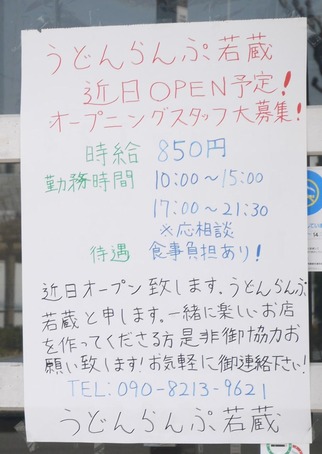 うどんらんぷ若蔵
近日OPEN予定!
オープニングスタッフ大募集!
時給 850円
勤務時間 10:00〜15:00
17:00〜21:30
※応相談
待遇 食事負担あり!
近日オープン致します。うどんらんぷ
若蔵と申します。一緒に楽しいお店
を作ってくださる方是非御協力お
願い致します!お気軽に御連絡下さい!
TEL:090-8213-9621
うどんらんぷ若蔵